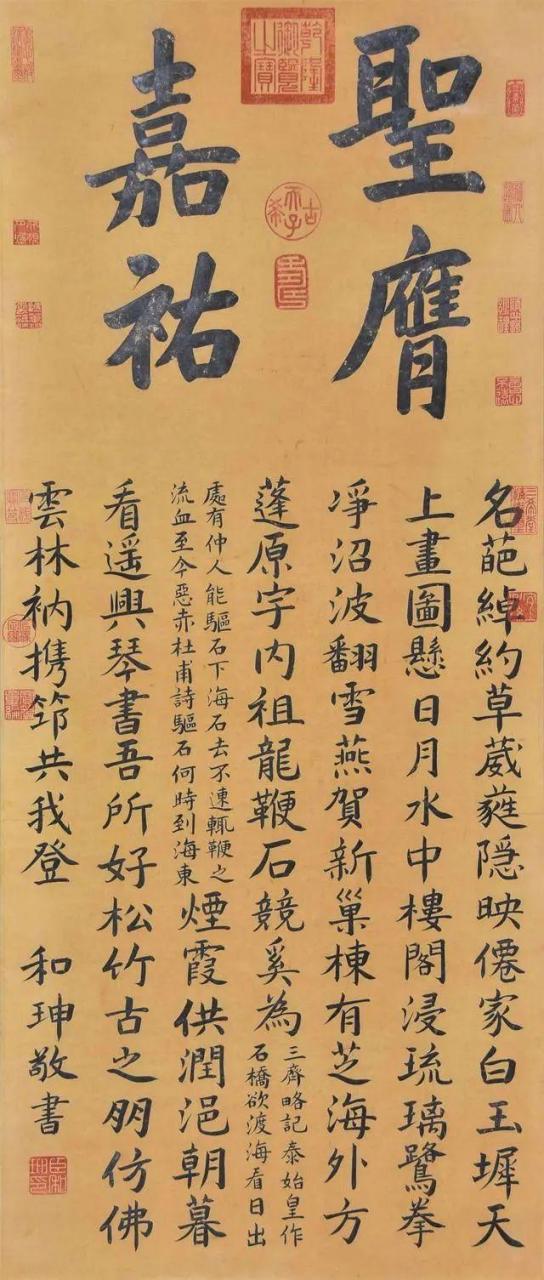 乾隆御覽之寶
聖膺
嘉祐
古希天子
名葩綽約草葳蕤隐映僊家白玉墀天
上畫圖懸日月水中樓閣浸琉璃鷺拳
凈沼波翻雪燕賀新巢棟有芝海外方
蓬原字内祖龍鞭石競奚為
三齊略記泰始皇作
石橋欲渡海看日出
處有仲人能驅石下海石去不速輒鞭之
流血至今惡赤杜甫詩驅石何時到海東
煙霞供潤浥朝暮
看遥興琴書吾所好松竹古之朋仿佛
雲林衲携筇共我登
和珅敬書